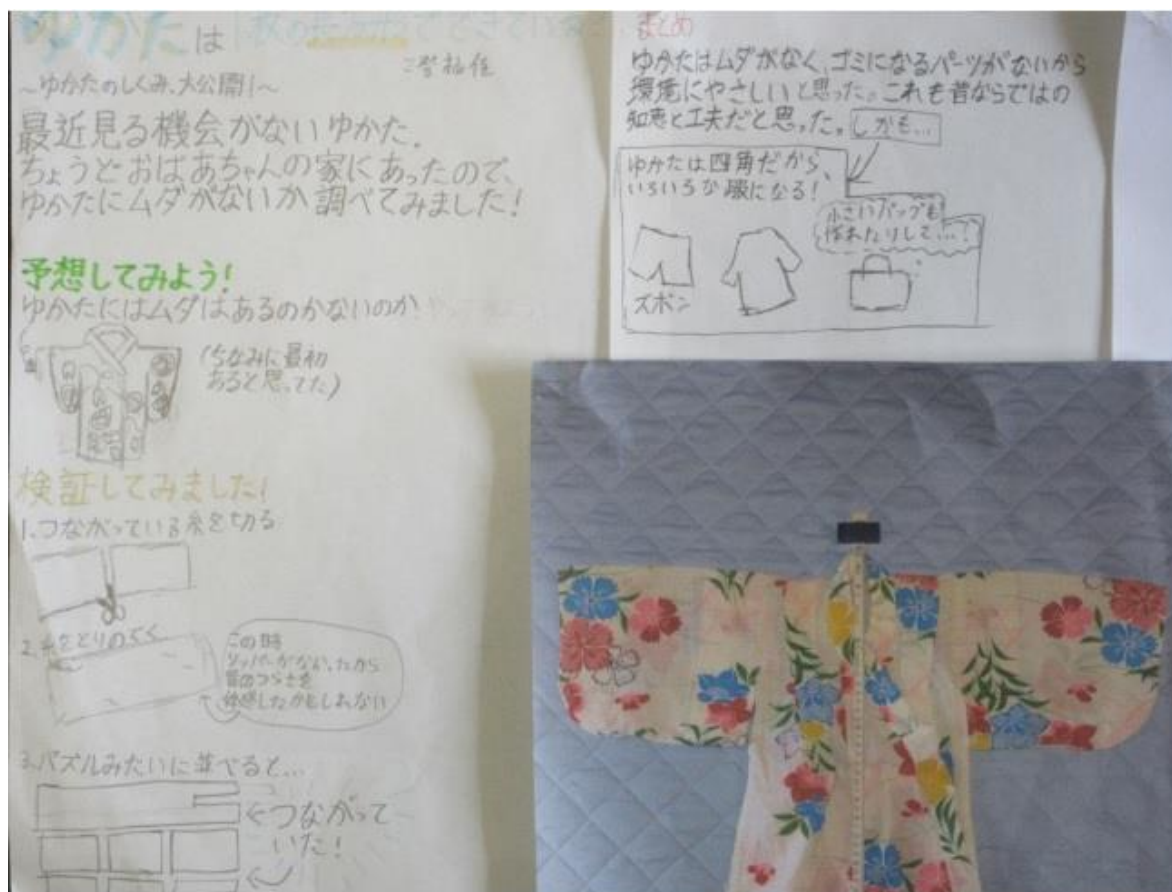 ゆかたは1枚の長方形でできていた
~ゆかたのしくみ、大公開!~
最近見る機会がないゆかた。
ちょうどおばあちゃんの家にあったので、
ゆかたにムダがないか調べてみました!
予想してみよう!
ゆかたにはムダはあるのかないのか
(ちなみに最初
あると思ってた)
検証してみました!
1.つながっている糸を切る
2.糸をとりのぞく
この時
リッパーがない、だから
昔のつらさを
体感したかもしれない
3.パズルみたいに並べると…
←つながって
いた!
まとめ
ゆかたはムダがなく、ゴミになるパーツがないから
環境にやさしいと思った。これも昔ならではの
知恵と工夫だと思った。しかも…
ゆかたは四角だから、
いろいろな服になる!
小さいバッグも
作れたりして…!
ズボン